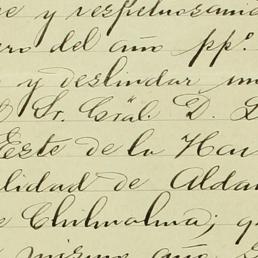 e y respetuosamen
ero del año pp.º
e y deslindar un
Sr. Gral. D.
Este de la Hac
alidad de Alda
e Chihuahua; q
mismo año